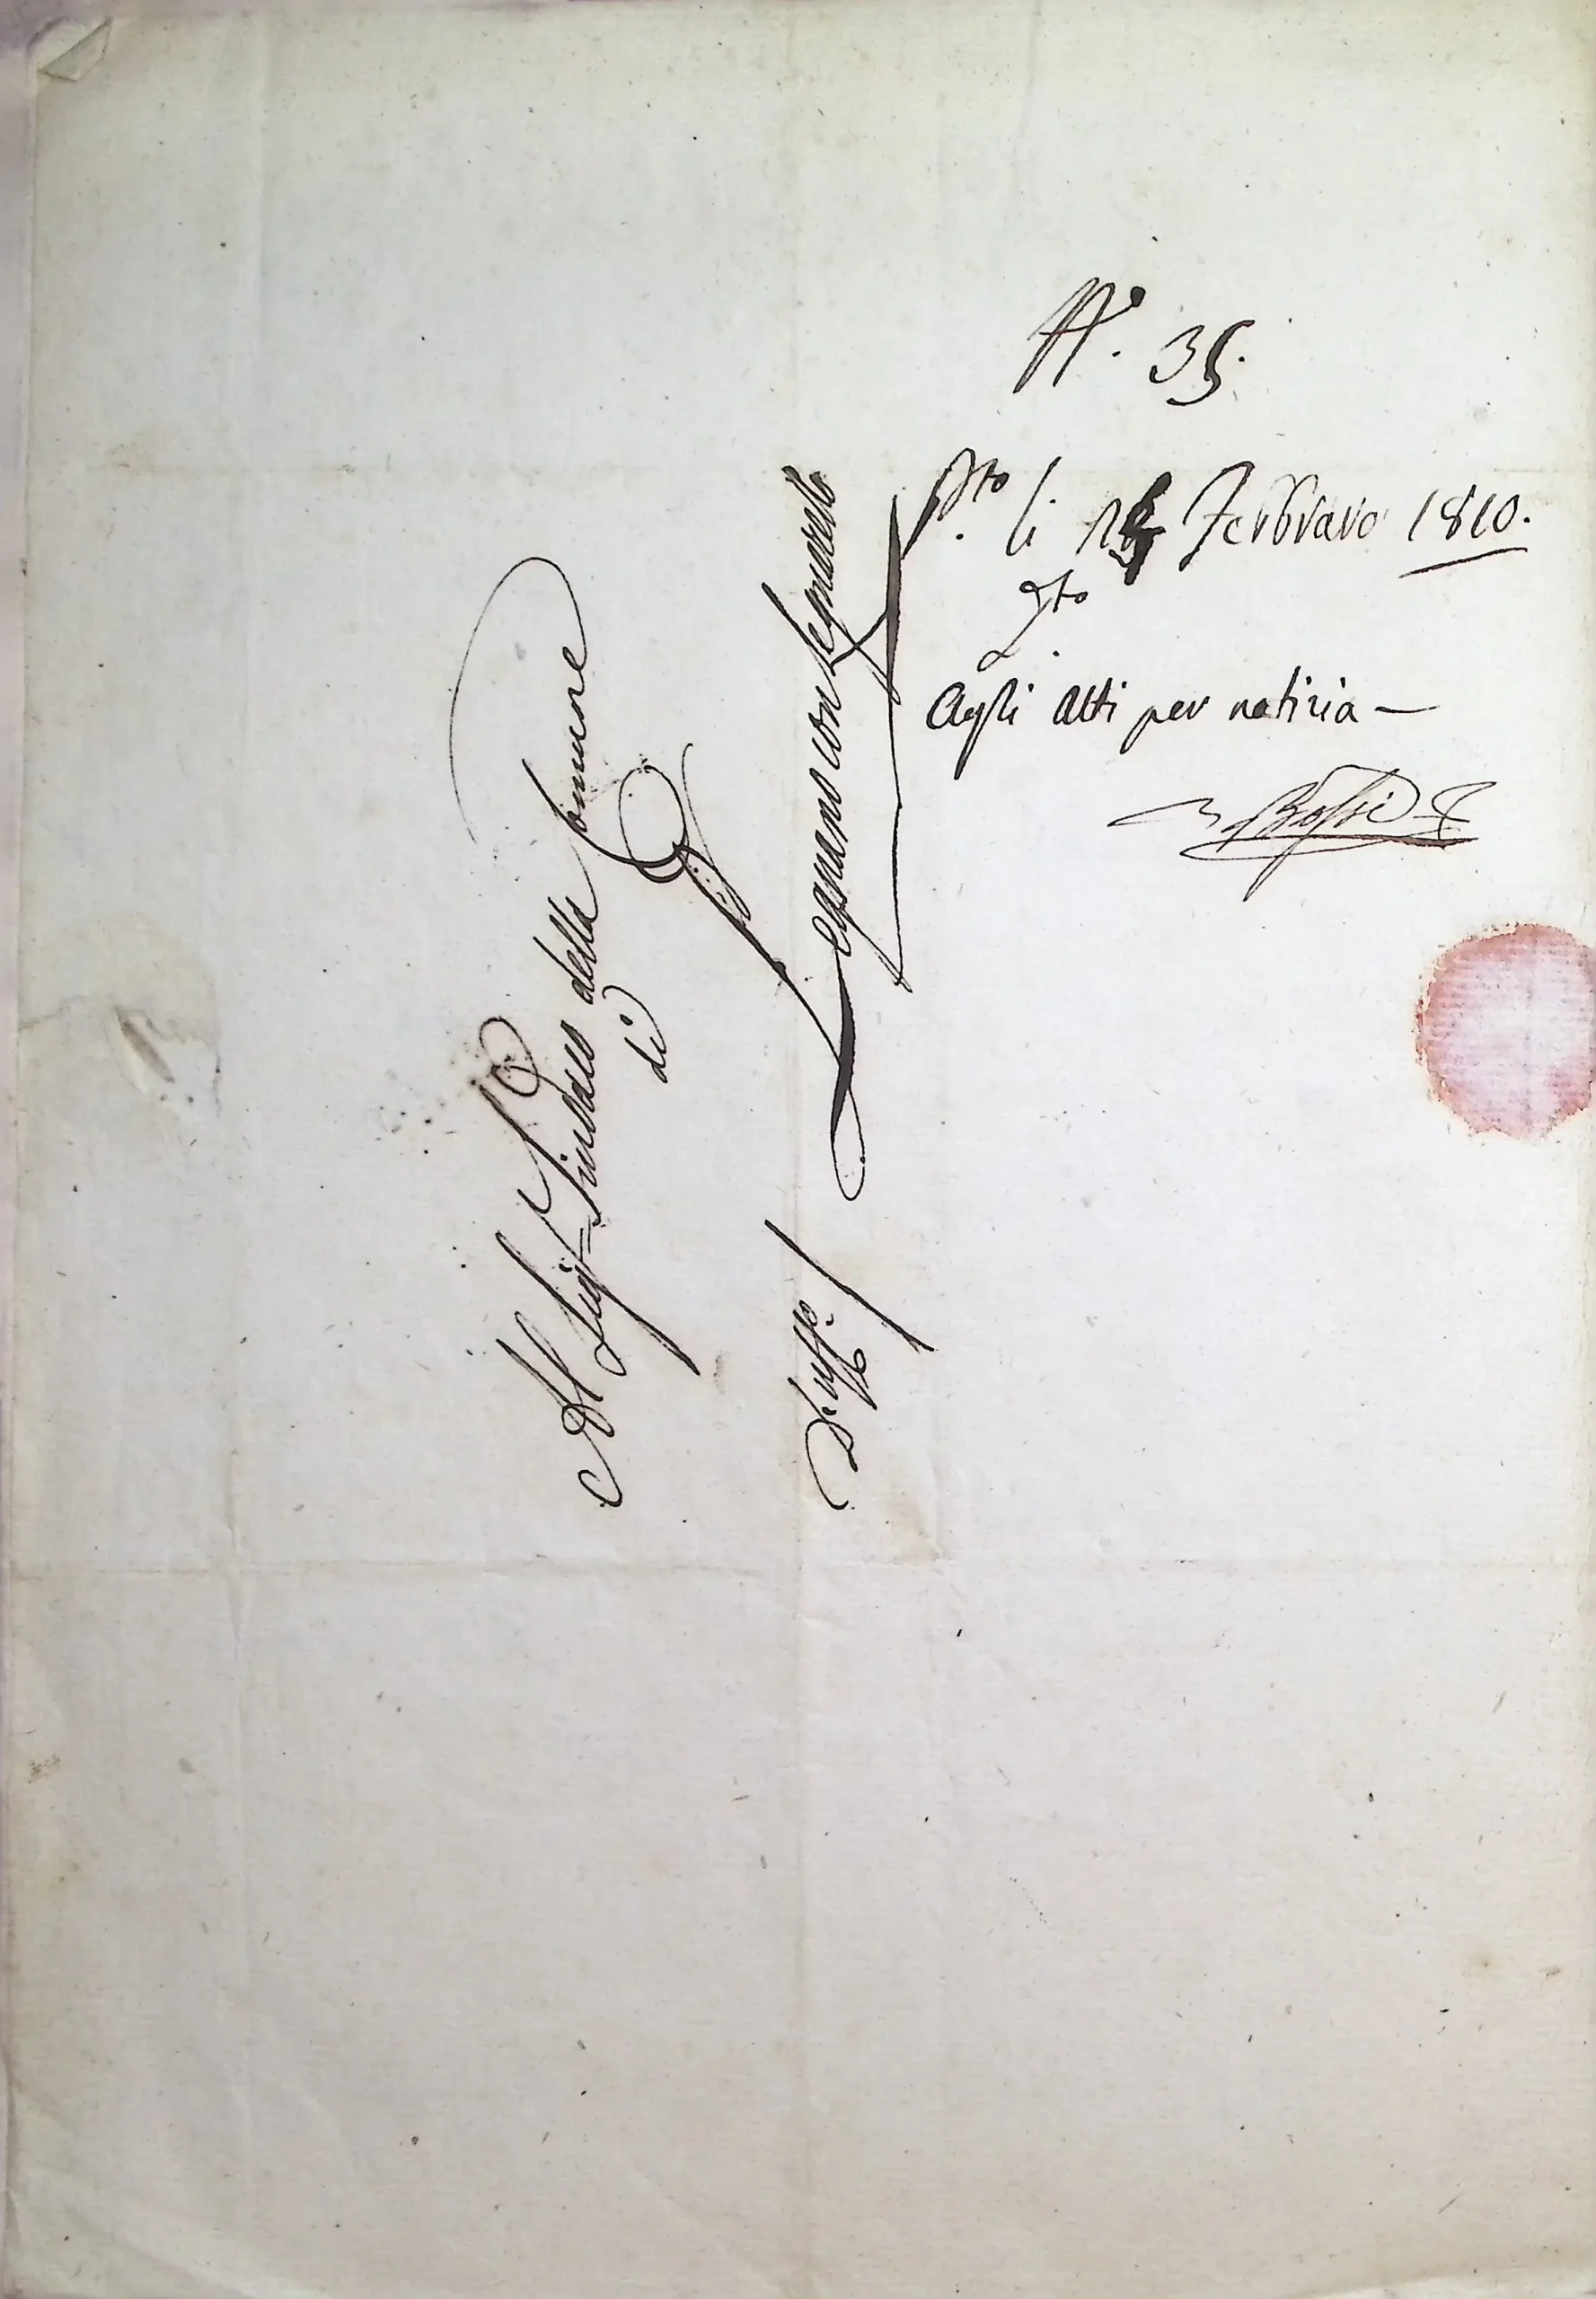 N.° 35.
P.to li Febbraro 1810.
Agli Atti per notizia —
Bossi
Al Sig.r Sindaco della Comune
di
Legnano con Legnarello
D'uff.o